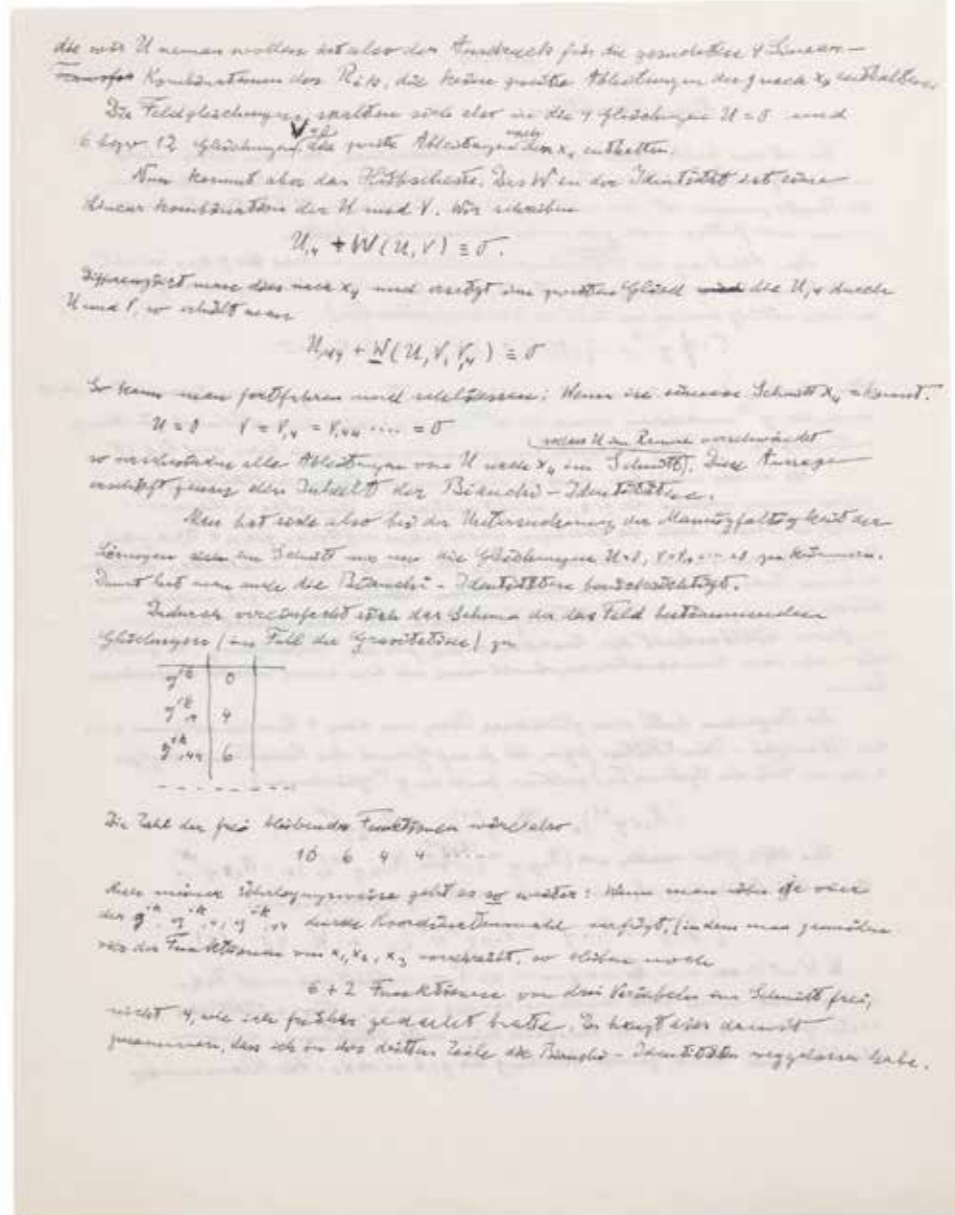 die wir U nennen wollen ist also der Ausdruck für die 4 Linear-
Kombinationen der Rik, die keine zweite Ableitungen der g nach x4 enthalten.
Die Feldgleichungen spalten sich also in die 4 Gleichungen U = 0 und
6 bezw. 12 Gleichungen V=0, die zweite Ableitungen nach x4 enthalten.
Nun kommt aber das Hübscheste. Das W in der Identität ist eine
Linearkombination der U und V. Wir schreiben
U,4 + W(U, V) ≡ 0.
Differenziert man dies nach x4 und ersetzt im zweiten Glied die U,4 durch
U und V, so erhält man
U,44 + W(U, V, V,4) ≡ 0
So kann man fortfahren und schliessen: Wenn in einem Schnitt x4 = konst.
U = 0 V = V,4 = V,44 .... = 0
(sodass U im Raume verschwindet
so verschwinden alle Ableitungen von U nach x4 im Schnitt). Diese Aussage
erschöpft genau den Inhalt der Bianchi-Identitäten.
Man hat sich also bei der Untersuchung der Mannigfaltigkeit der
Lösungen im Schnitt nur um die Gleichungen U=0, V=V,4 ... =0 zu kümmern.
Damit hat man die Bianchi-Identitäten berücksichtigt.
Dadurch vereinfacht sich das Schema der das Feld bestimmenden
Gleichungen (im Fall der Gravitation) zu
g^ik | 0
g^ik,4 | 4
g^ik,44 | 6
Die Zahl der frei bleibenden Funktionen wäre also
10 6 4 4 ....
Aus meiner Überlegungsweise geht es so weiter: Wenn man über je vier
der g^ik, g^ik,4, g^ik,44 durch Koordinatenwahl verfügt, (indem man
Funktionen von x1, x2, x3 vorschreibt, so bleiben noch
6 + 2 Funktionen von drei Variabeln im Schnitt frei,
nicht 4, wie ich früher gedacht hatte. Es hängt dies damit
zusammen, dass ich in der dritten Zeile die Bianchi-Identitäten weggelassen habe.